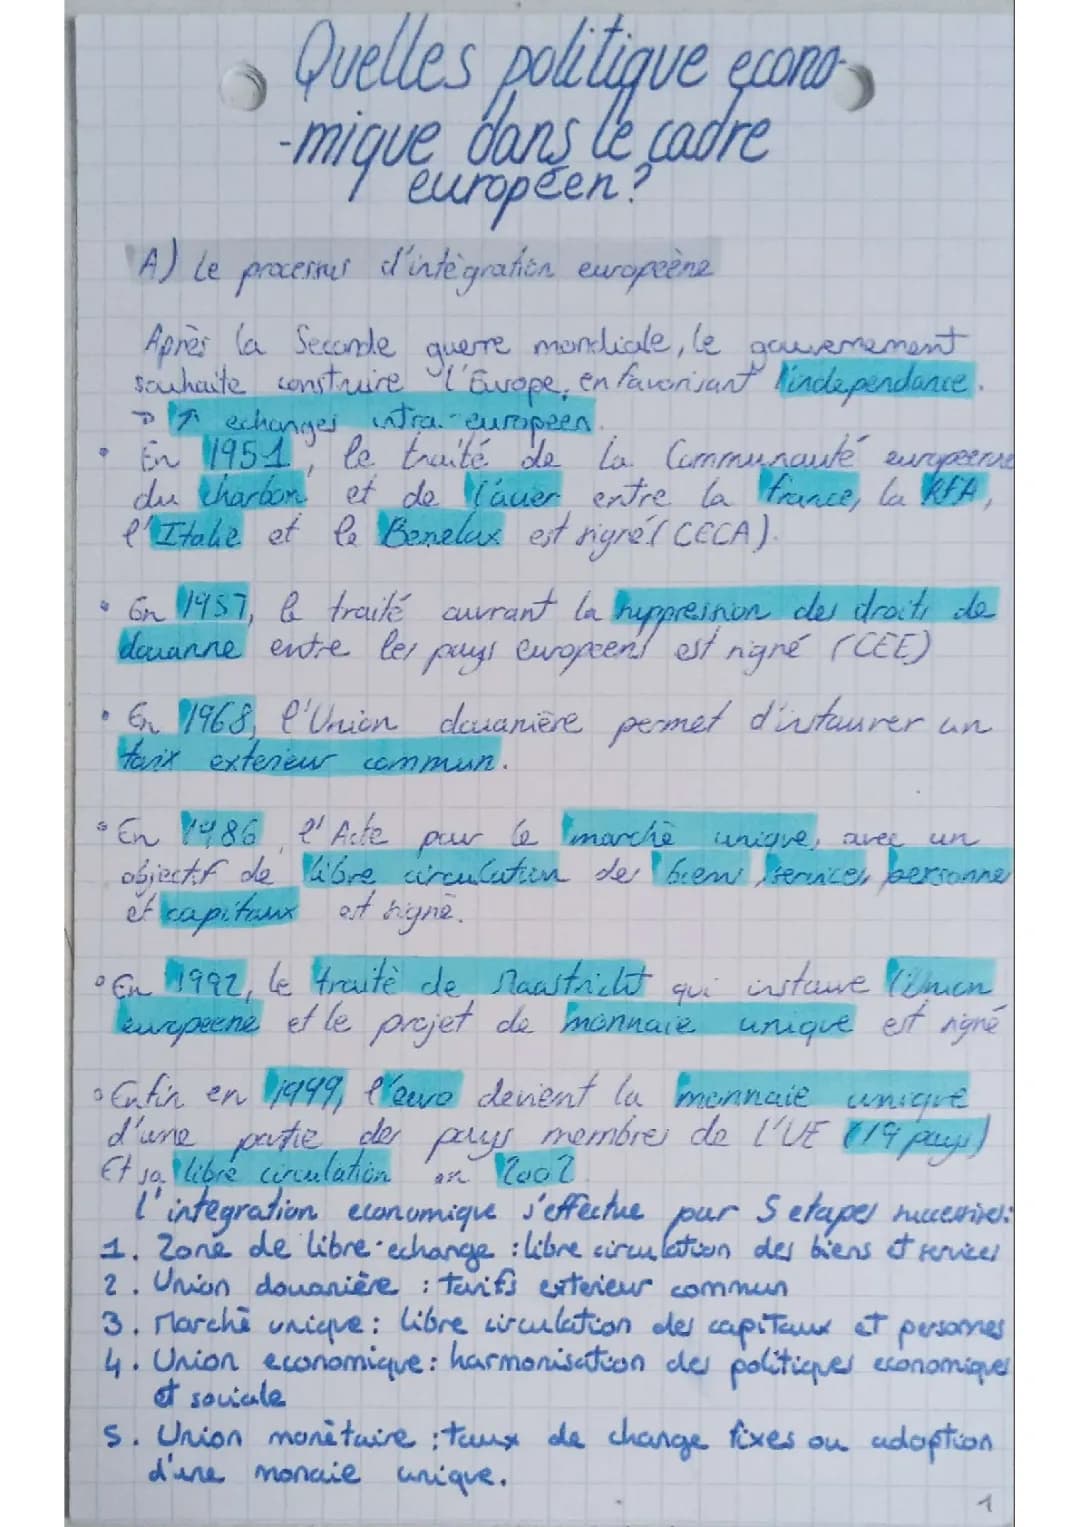 Quelles politique econo-
-mique dans le cadre
européen?
A) Le processus d'intègration europeène
Après la Seconde guerre mondiale, le gouvernement
souhaite construire l'Europe, en favorisant l'independance.
→ ↑ echanges intra-europeen.
• En 1951, le traité de la Communauté europeenne
du charbon et de l'acier entre la france, la RFA,
l'Italie et le Benelux est signé (CECA).
• En 1957, le traité ouvrant la suppression des droits de
douanne entre les pays europeens est signé (CEE)
• En 1968, l'Union douanière permet d'instaurer un
tarix exterieur commun.
• En 1986, l'Acte pour le marchè unique, avec un
objectif de libre circulation des biens, services, personnes
et capitaux est signé.
• En 1992, le traitè de Maastricht qui instaure l'Union
europeene et le projet de monnaie unique est signé
• Enfin en 1999, l'euro devient la monnaie unique
d'une partie des pays membres de l'UE (19 pays)
Et sa libre circulation en 2002.
l'intégration economique s'effectue par 5 etapes successives:
1. Zone de libre-echange : libre circulation des biens et services
2. Union douanière : tarifs exterieur commun
3. Marchè unique : libre circulation des capitaux et personnes
4. Union economique : harmonisation des politiques economiques
et sociale
5. Union monètaire : taux de change fixes ou adoption
d'une monaie unique.
1